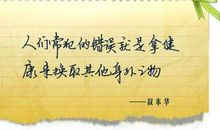 人们常犯的错误就是拿健
康来换取其他身外之物
——叔本华